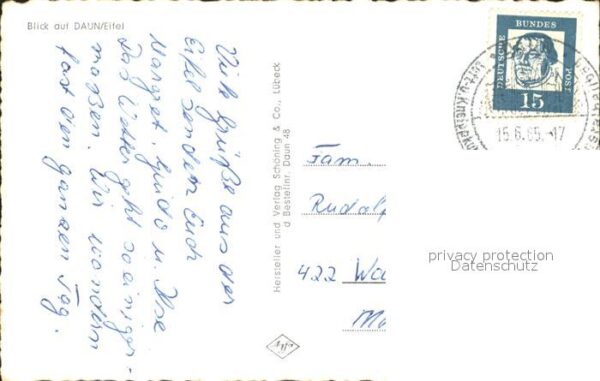 Blick auf DAUN/Eifel
Viele Grüße aus der
Eifel senden Euch
Margret, Guido u. Ilse
Das Wetter geht so einiger-
maßen. Wir wandern
fast den ganzen Tag.
Hersteller und Verlag Schöning & Co., Lübeck
d Bestellnr. Daun 48
DEUTSCHE BUNDES POST
15
15.6.65.-17
Fam.
Rudolp
422 Wa
privacy protection
Datenschutz